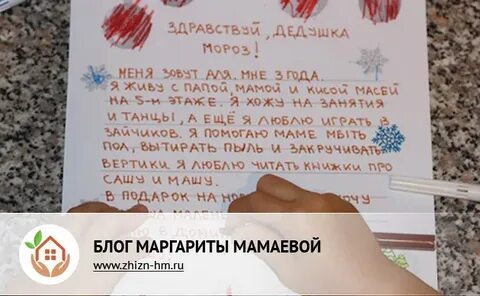 ЗДРАВСТВУЙ, ДЕДУШКА
МОРОЗ!
МЕНЯ ЗОВУТ АЛЯ. МНЕ 3 ГОДА.
Я ЖИВУ С ПАПОЙ, МАМОЙ И КИСОЙ МАСЕЙ
НА 5-М ЭТАЖЕ. Я ХОЖУ НА ЗАНЯТИЯ
И ТАНЦЫ, А ЕЩЁ Я ЛЮБЛЮ ИГРАТЬ В
ЗАЙЧИКОВ. Я ПОМОГАЮ МАМЕ МЫТЬ
ПОЛ, ВЫТИРАТЬ ПЫЛЬ И ЗАКРУЧИВАТЬ
ВЕРТИКИ. Я ЛЮБЛЮ ЧИТАТЬ КНИЖКИ ПРО
САШУ И МАШУ.
В ПОДАРОК НА
БЛОГ МАРГАРИТЫ МАМАЕВОЙ
www.zhizn-hm.ru